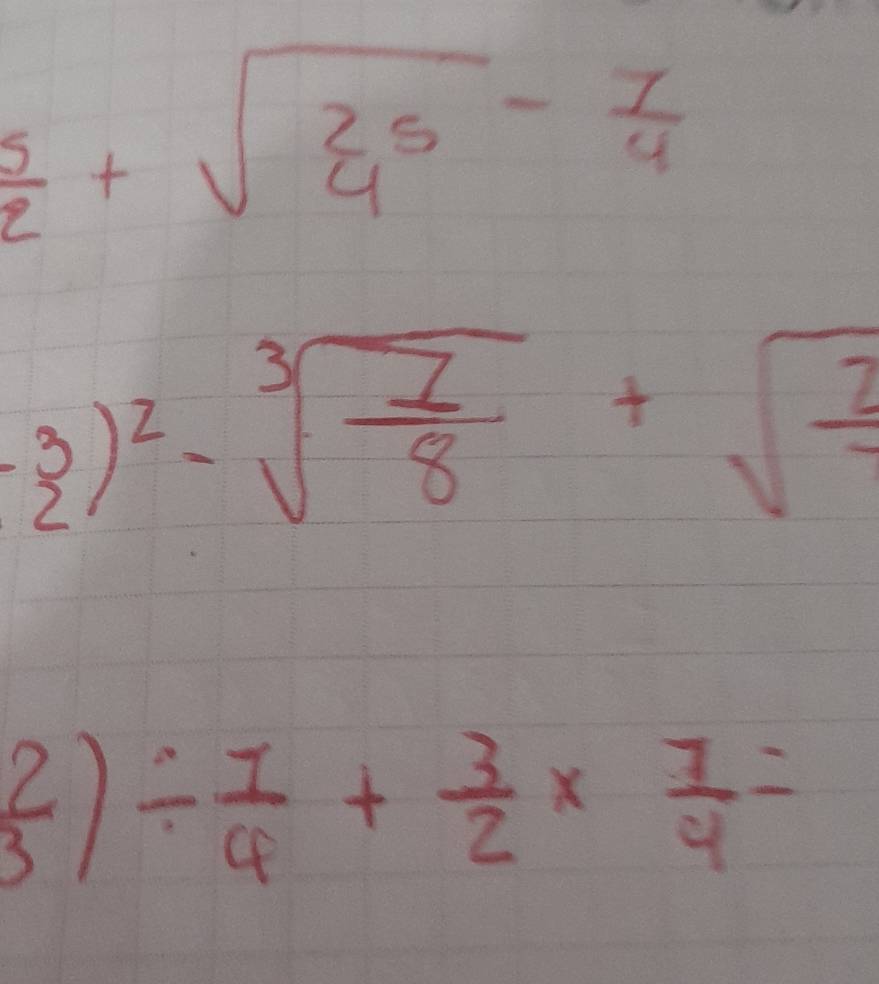 5/2 + √(25/4) - 1/4
- 3/2)² - ³√(1/8) + √(
2/3) ÷ 1/4 + 3/2 × 1/4 =